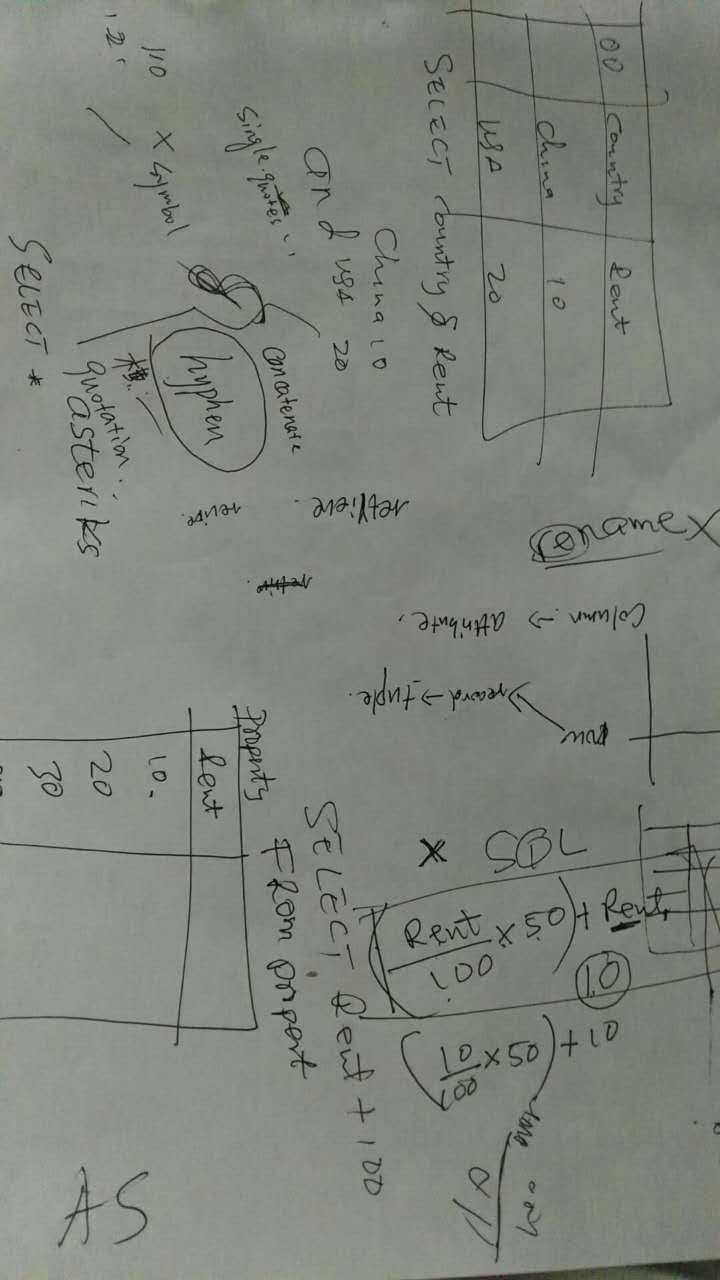 00 Country Rent
China 10
USA 20
SELECT Country & Rent
China 10
and USA 20
Single quotes ''
110 X Symbol
concatenate
hyphen
quotation
asteriks
SELECT *
retlieve.
name X
Column → attribute.
row
record → tuple.
Property
Rent
10.
20
30
SELECT Rent + 100
FROM propert
X SQL
(Rent/100 X 50) + Rent
10
(10/100 X 50) + 10
AS